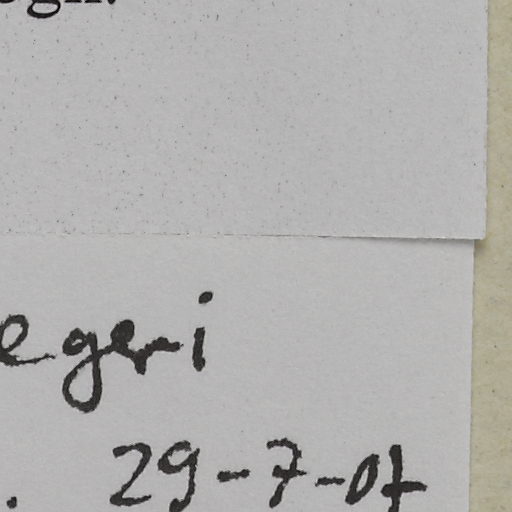 egeri
29-7-07